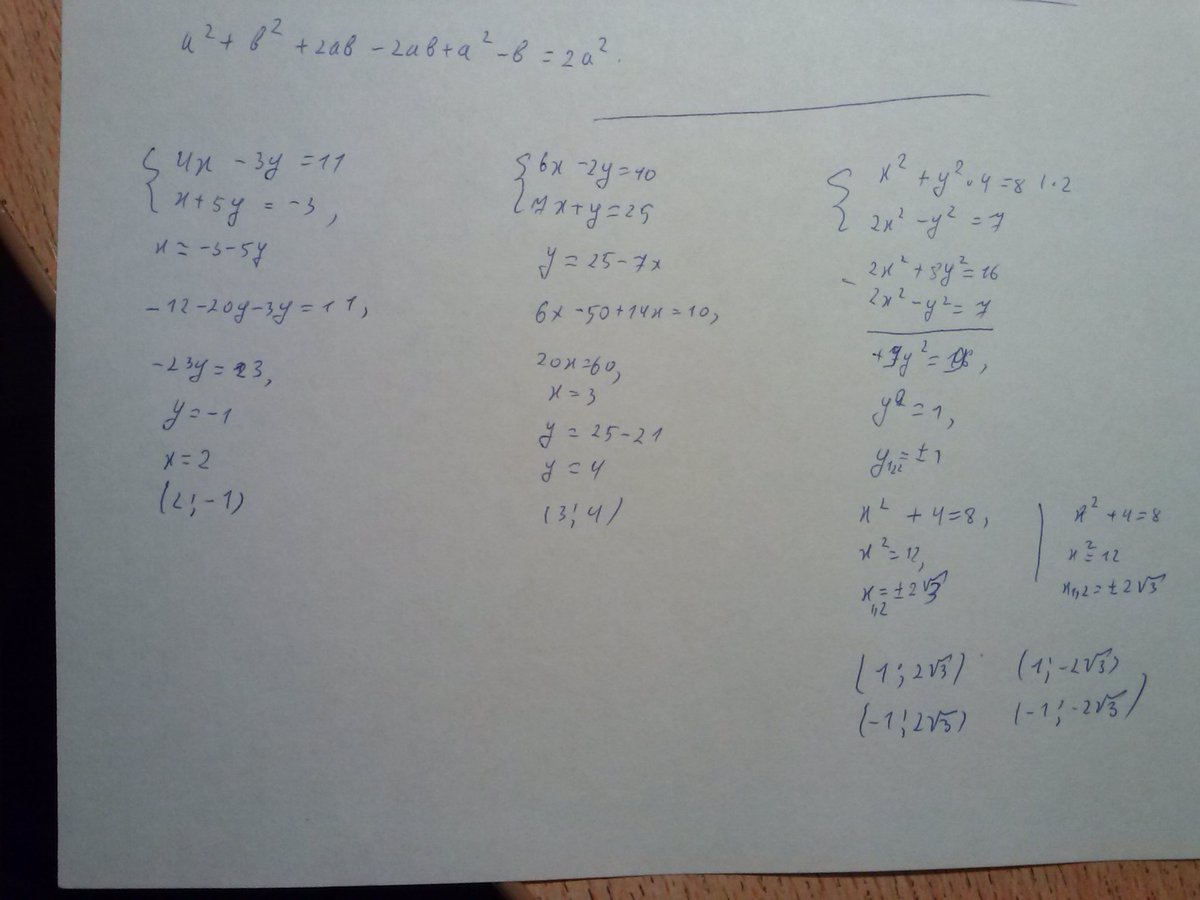 a² + b² + 2ab - 2ab + a² - b = 2a².
4x - 3y = 11
x + 5y = -3,
x = -3 - 5y
-12 - 20y - 3y = 11,
-23y = 23,
y = -1
x = 2
(2; -1)
6x - 2y = 10
7x + y = 25
y = 25 - 7x
6x - 50 + 14x = 10,
20x = 60,
x = 3
y = 25 - 21
y = 4
(3; 4)
x² + y² · 4 = 8 | · 2
2x² - y² = 7
2x² + 8y² = 16
- 2x² - y² = 7
y² = 1,
y₁,₂ = ±1
x² + 4 = 8,
x² = 12,
x₁,₂ = ±2√3
x² + 4 = 8
x² = 12
x₁,₂ = ±2√3
(1; 2√3) (1; -2√3)
(-1; 2√3) (-1; -2√3)